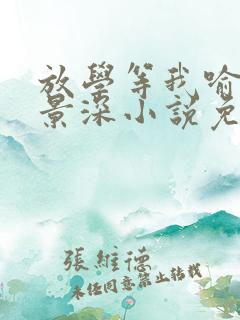 放學等我喻
景深小說免
張維德
未经同意禁止转载